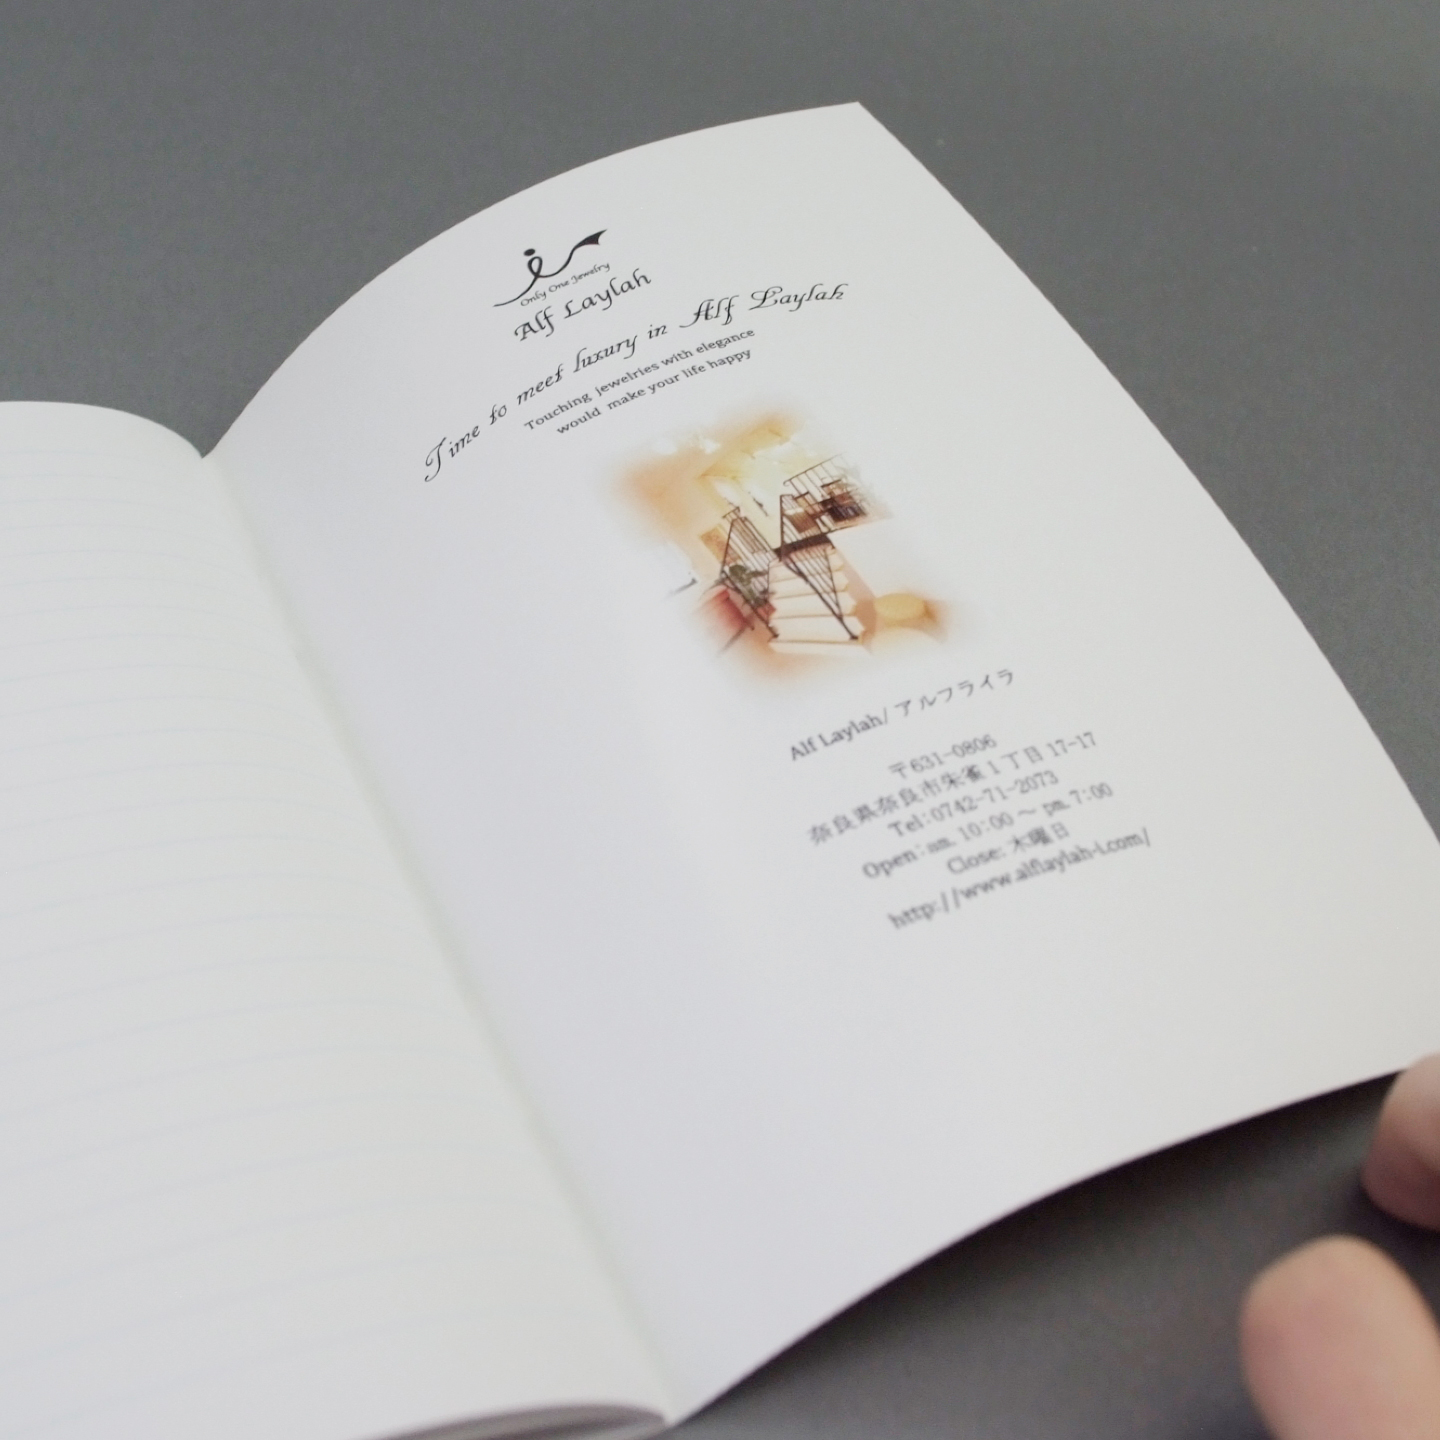 Only One Jewelry
Alf Laylah
Time to meet luxury in Alf Laylah
Touching jewelries with elegance
would make your life happy
Alf Laylah/ アルフライラ
〒631-0806
奈良県奈良市朱雀1丁目17-17
Tel:0742-71-2073
Open:am. 10:00 ～ pm. 7:00
Close: 木曜日
http://www.alflaylah-i.com/